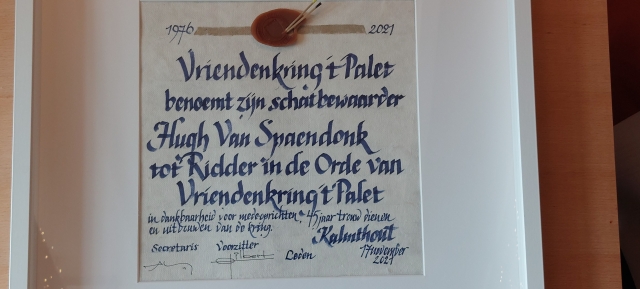 1976 2021
Vriendenkring 't Palet
benoemt zijn schatbewaarder
Hugh Van Spaendonk
tot Ridder in de Orde van
Vriendenkring 't Palet
in dankbaarheid voor medeoprichten & 45 jaar trouw dienen
en uitbouwen van de kring.
Kalmthout
Secretaris Voorzitter Leden
17 november
2021